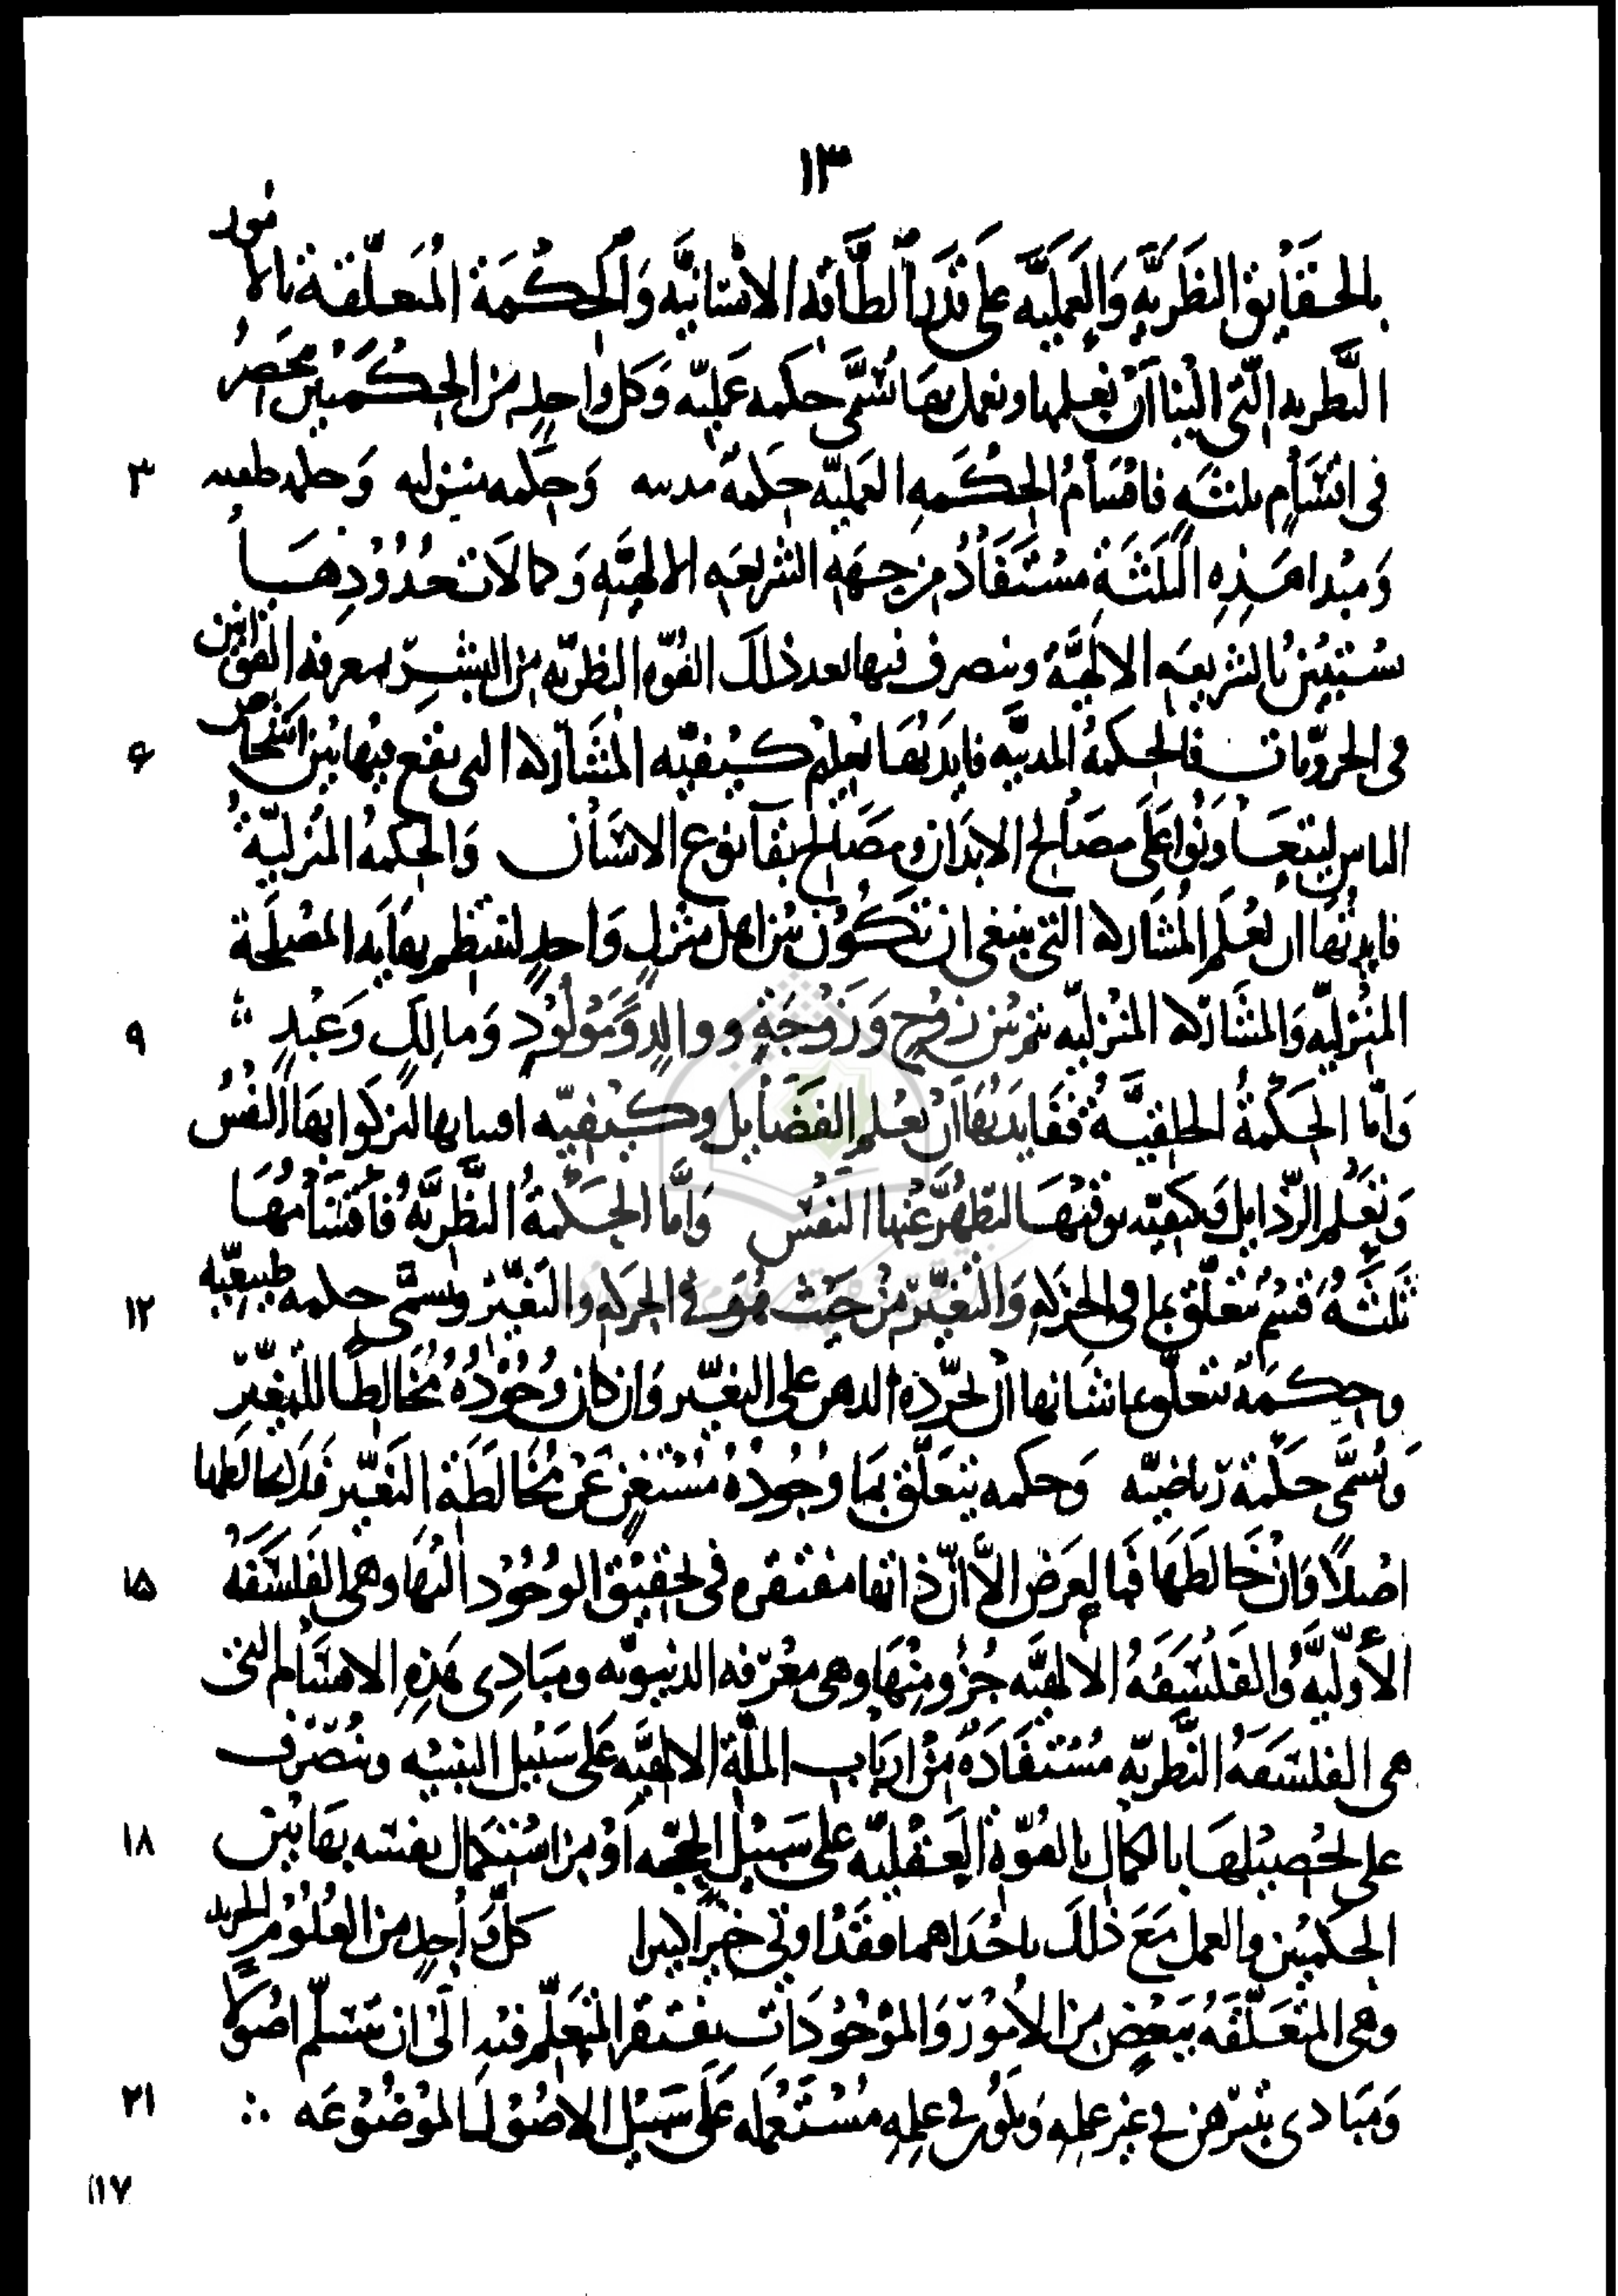 ١٣
بالحقايق النظريّه والعمليّه على قدر الطاقه الانسانيّه والحكمة المتعلّقة بالامور
النظريه الّتى الينا ان نعلمها ونعمل بها تسمّى حكمه عمليّه وكل واحدٍ من الحكمتين تنحصر
٣ فى اقسامٍ ثلثةٍ فاقسام الحكمه العمليّه حكمة مدنيه وحكمه منزليه وحكمه خلقيه
ومبدا هذه الثلثة مستفادٌ من جهة الشريعه الالهيّه وكمالات حدودها
يستبين بالشريعه الالهيّة وينصرف فيها بعد ذلك القوّه النظريّه من البشر بمعرفه القوانين
۶ فى الجزويّات فالحكمة المدنيّه فايدتها تعلم كيفيّه المشاركه التى تقع فيها بين اشخاص
الناس ليتعاونوا على مصالح الابدان ومصالح بقآ نوع الانسان والحكمة المنزليّة
فايدتها ان تعلم المشاركه التى ينبغى ان تكون بين اهل منزلٍ واحدٍ لتنتظم بها به المصلحة
٩ المنزليّه والمشاركه المنزليّه تتم بين زوج وزوجةٍ ووالدٍ ومولودٍ ومالكٍ وعبدٍ
وامّا الحكمة الخلقيّة ففايدتها ان تعلم الفضايل وكيفيّه اقتنايها لتزكوا بها النفس
وتعلم الرّذايل وكيفيّه توقيها لتطهّر عنها النفس وامّا الحكمة النظريّة فاقسامها
١٢ ثلثة قسم تتعلّق بما فى الحركه والتغيّر من حيث هو فى الحركه والتغيّر وتسمّى حكمه طبيعيّه
وحكمة تتعلّق بما شانها ان تجرّده الذهن على التغيّر وان كان وجوده مخالطًا للتغيّر
وتسمّى حكمة رياضيّه وحكمه تتعلّق بما وجوده مستغنٍ عن مخالطة التغيّر فلا تخالطها
١۵ اصلًا وان خالطها فبالعرض الّا انّ ذاتها مفتقره فى تحقيق الوجود اليها وهى الفلسفه
الأوليّة والفلسفة الالهيّه جزو منها وهى معرفه الربوبيّه ومبادى هذه الاقسام التى
هى الفلسفة النظريّه مستفادة من ارباب الملّة الالهيّه على سبيل التنبيه وينصرف
١٨ على تحصيلها بالكمال بالقوّة العقليّه على سبيل الحجّه اومن استكمال نفسه بهاتين
الحكمتين والعمل مع ذلك باحداهما فقد اوتى خيرا كبيرا كلّ واحدٍ من العلوم الجزئيه
وهى المتعلّقه ببعض من الامور والموجودات يفتقر المتعلّم فيه الى ان يتسلّم اصولا
٢١ ومبادى تتبرهن فى غير علمه وتكون فى علمه مستعمله على سبيل الاصول الموضوعه
١١٧